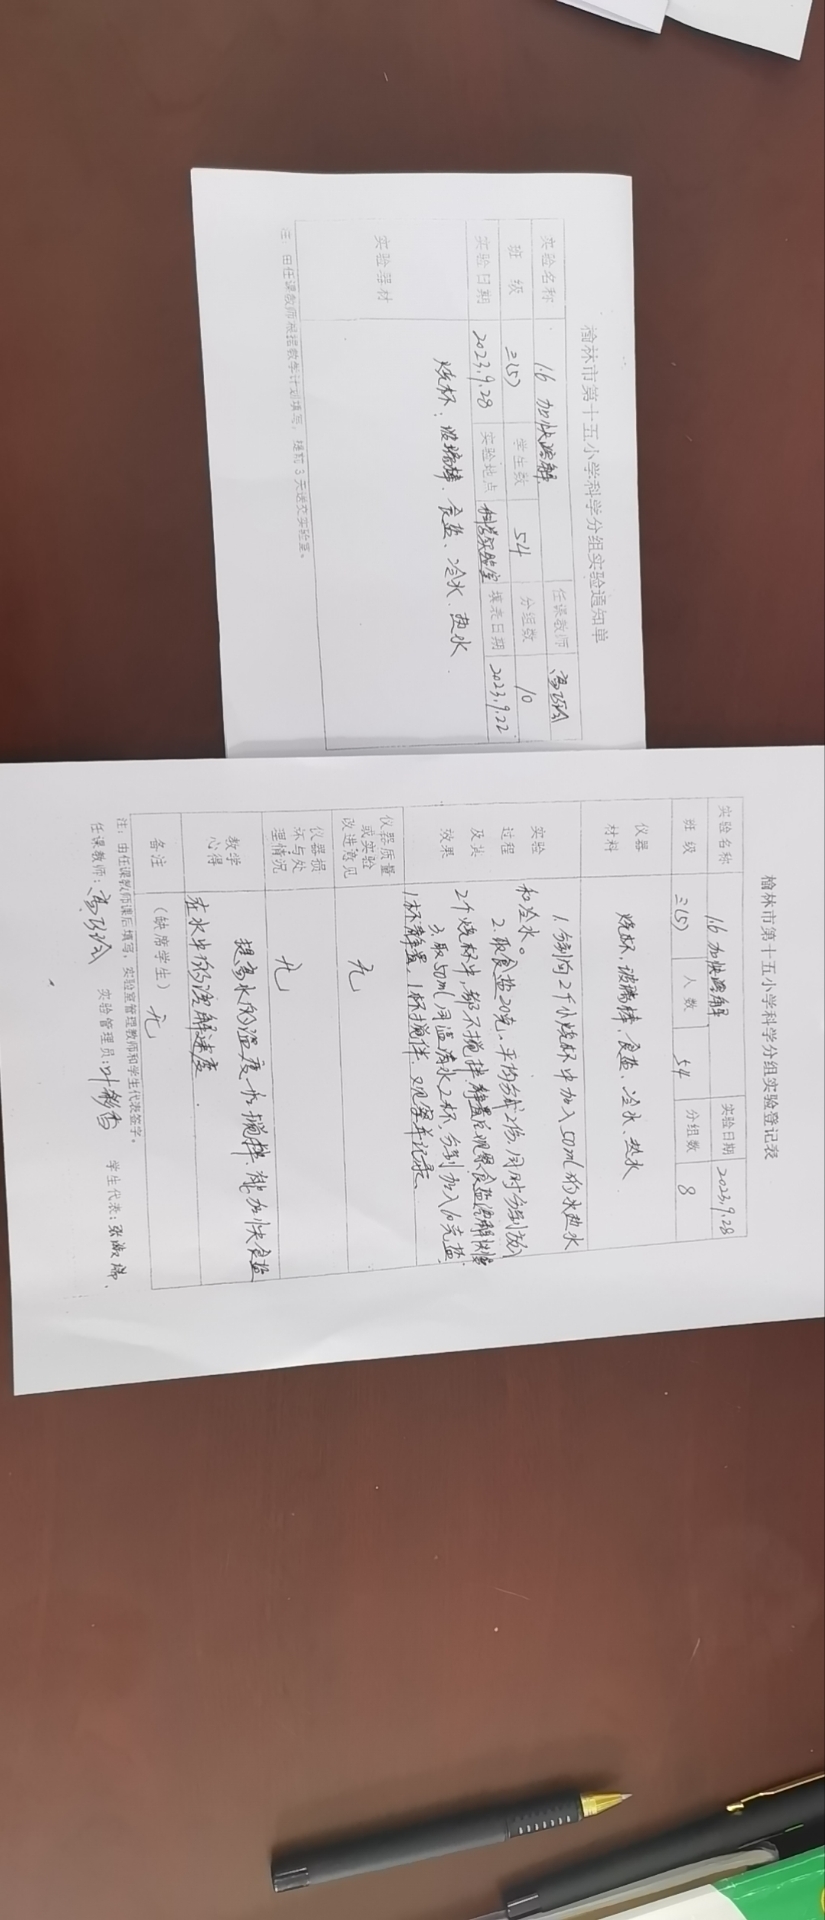 榆林市第十五小学科学分组实验通知单
实验名称 1.6 加快溶解 任课教师
班 级 三(5) 学生数 54 分组数 10
实验日期 2023.9.28 实验地点 科学实验室 填表日期 2023.9.22
实验器材 烧杯、玻璃棒、食盐、冷水、热水
注:由任课教师根据教学计划填写,提前3天送交实验室。
榆林市第十五小学科学分组实验登记表
实验名称 1.6 加快溶解 实验日期 2023.9.28
班 级 三(5) 人 数 54 分组数 8
仪器材料 烧杯、玻璃棒、食盐、冷水、热水
实验过程及其效果
1.分别向2个小烧杯中加入50ml的水热水
和冷水。
2.取食盐20克,平均分成2份,同时分别放入
2个烧杯中,都不搅拌,静置后观察食盐溶解快慢
3.取50ml同温清水2杯,分别加入10克盐,
1杯静置,1杯搅拌,观察并记录。
仪器质量或实验改进意见 无
仪器损坏与处理情况 无
教学心得
提高水的温度,搅拌,能加快食盐
在水中的溶解速度.
备注 (缺席学生) 无
注:由任课教师课后填写,实验室管理教师和学生代表签字。
任课教师: 实验管理员: 学生代表: